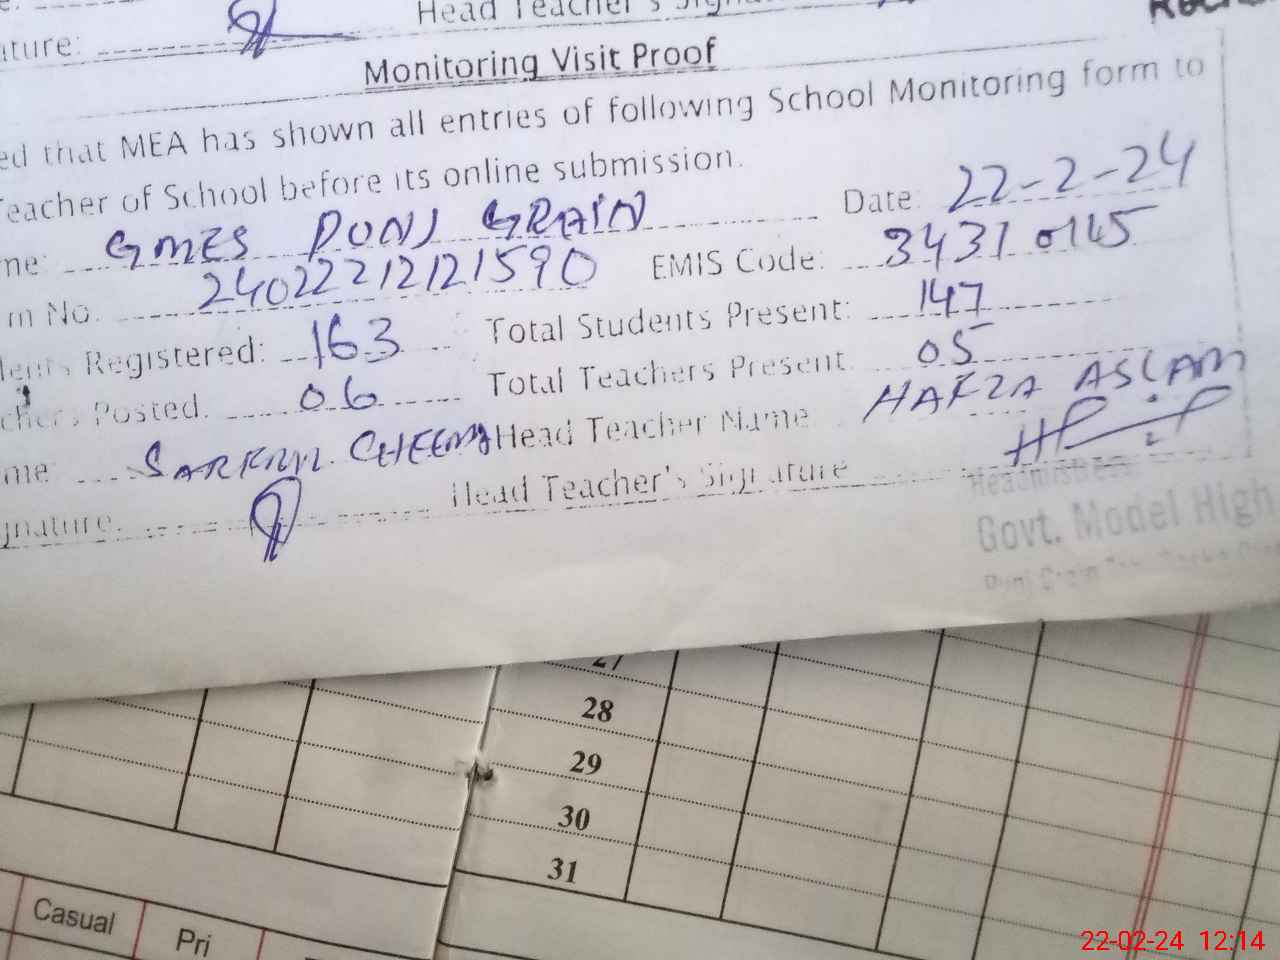 ature: Head Teacher's Sign
Monitoring Visit Proof
ed that MEA has shown all entries of following School Monitoring form to
Teacher of School before its online submission.
me: GMES DUNJ GRAIN Date: 22-2-24
m No. 24022212121590 EMIS Code: 34310145
dents Registered: 163 Total Students Present: 147
chers Posted. 06 Total Teachers Present. 05
me CHEEMA Head Teacher Name HAFZA ASLAM
gnature. Head Teacher's Signature
Headmistress
Govt. Model High
27
28
29
30
31
Casual Pri
22-02-24 12:14